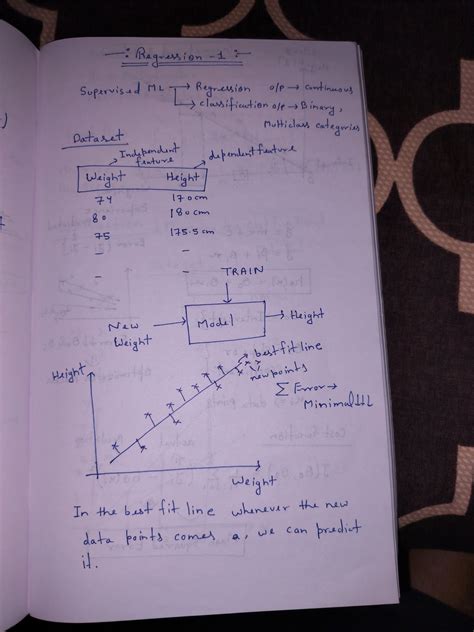 Regression - 1
Supervised ML → Regression o/p → continuous
→ classification o/p → Binary,
Multiclass categories
Dataset
Independent feature
dependent feature
Weight Height
74 170 cm
80 180 cm
75 175.5 cm
TRAIN
New Weight → Model → Height
Height
best fit line
new points
Σ Error →
Minimal
Weight
In the best fit line whenever the new
data points comes a, we can predict
it.